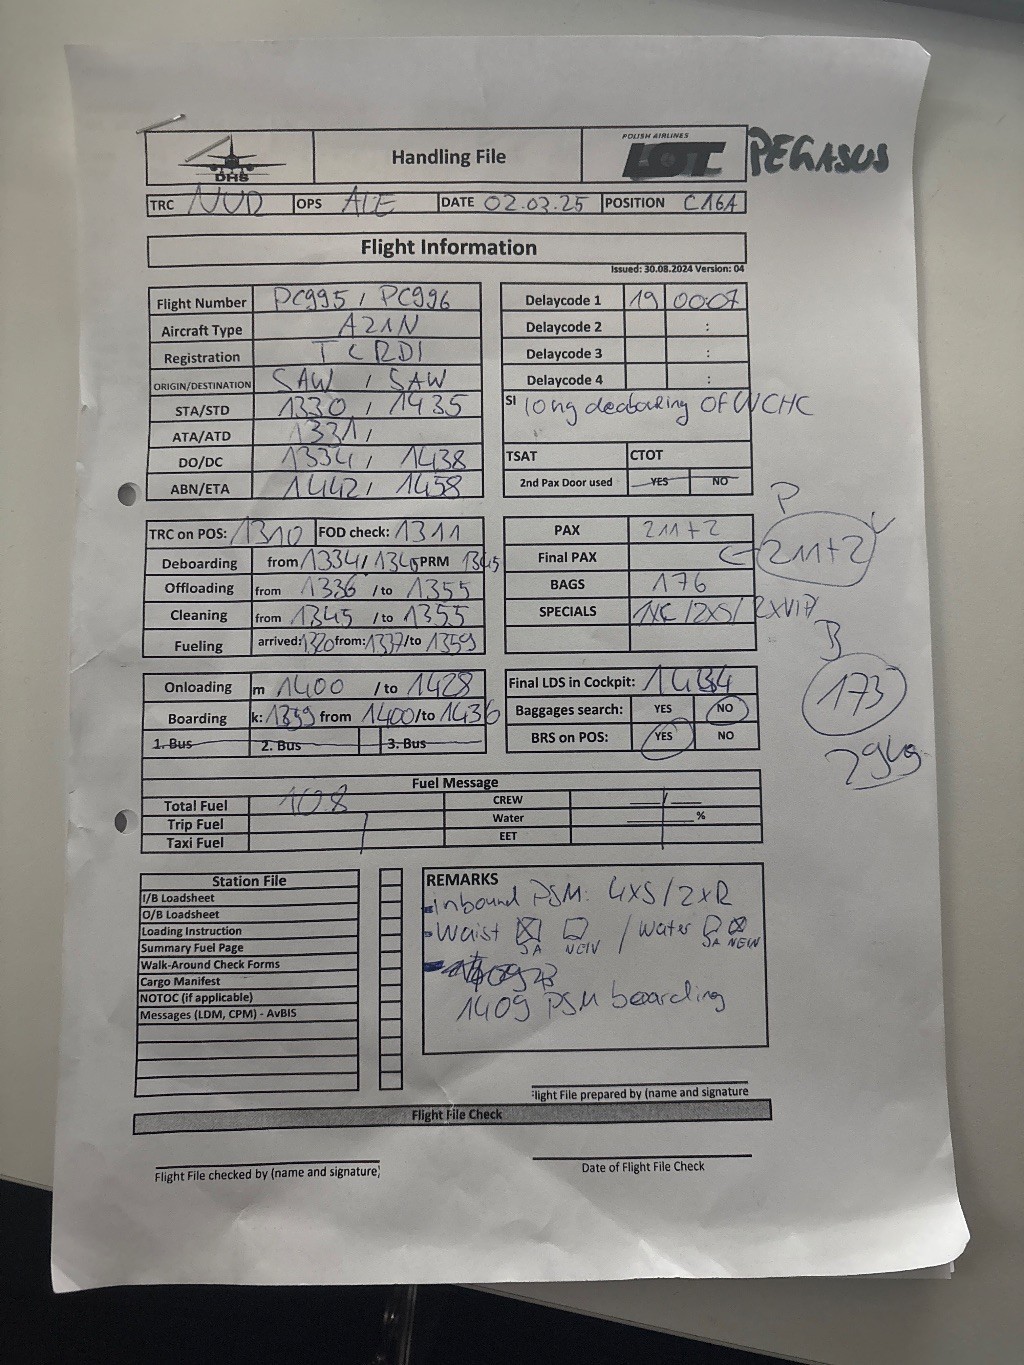 DHS
Handling File
POLISH AIRLINES
LOT
PEGASUS
TRC NUR OPS ALE DATE 02.03.25 POSITION C16A
Flight Information
Issued: 30.08.2024 Version: 04
Flight Number PC995 / PC996
Aircraft Type A21N
Registration TCRDI
ORIGIN/DESTINATION SAW / SAW
STA/STD 1330 / 1435
ATA/ATD 1331 /
DO/DC 1334 / 1438
ABN/ETA 1442 / 1458
Delaycode 1 19 00:07
Delaycode 2 :
Delaycode 3 :
Delaycode 4 :
SI long deaboarding OF WCHC
TSAT CTOT
2nd Pax Door used YES NO
TRC on POS: 1310 FOD check: 1311
Deboarding from 1334 / 1345 PRM 1345
Offloading from 1336 /to 1355
Cleaning from 1345 /to 1355
Fueling arrived: 1320 from: 1337 /to 1359
PAX 211+2
Final PAX
BAGS 176
SPECIALS 1XC /2XS/ RXVIP
P
211+2
B
173
29kg
Onloading m 1400 /to 1428
Boarding k: 1359 from 1400 /to 1436
1. Bus 2. Bus 3. Bus
Final LDS in Cockpit: 1434
Baggages search: YES NO
BRS on POS: YES NO
Fuel Message
Total Fuel 108 CREW /
Trip Fuel Water %
Taxi Fuel EET
Station File
I/B Loadsheet
O/B Loadsheet
Loading Instruction
Summary Fuel Page
Walk-Around Check Forms
Cargo Manifest
NOTOC (if applicable)
Messages (LDM, CPM) - AvBIS
REMARKS
- Inbound PSM: 4xS / 2xR
- Waist JA NEIN / Water JA NEIN
1409 PSM boarding
:light File prepared by (name and signature
Flight File Check
Flight File checked by (name and signature)
Date of Flight File Check